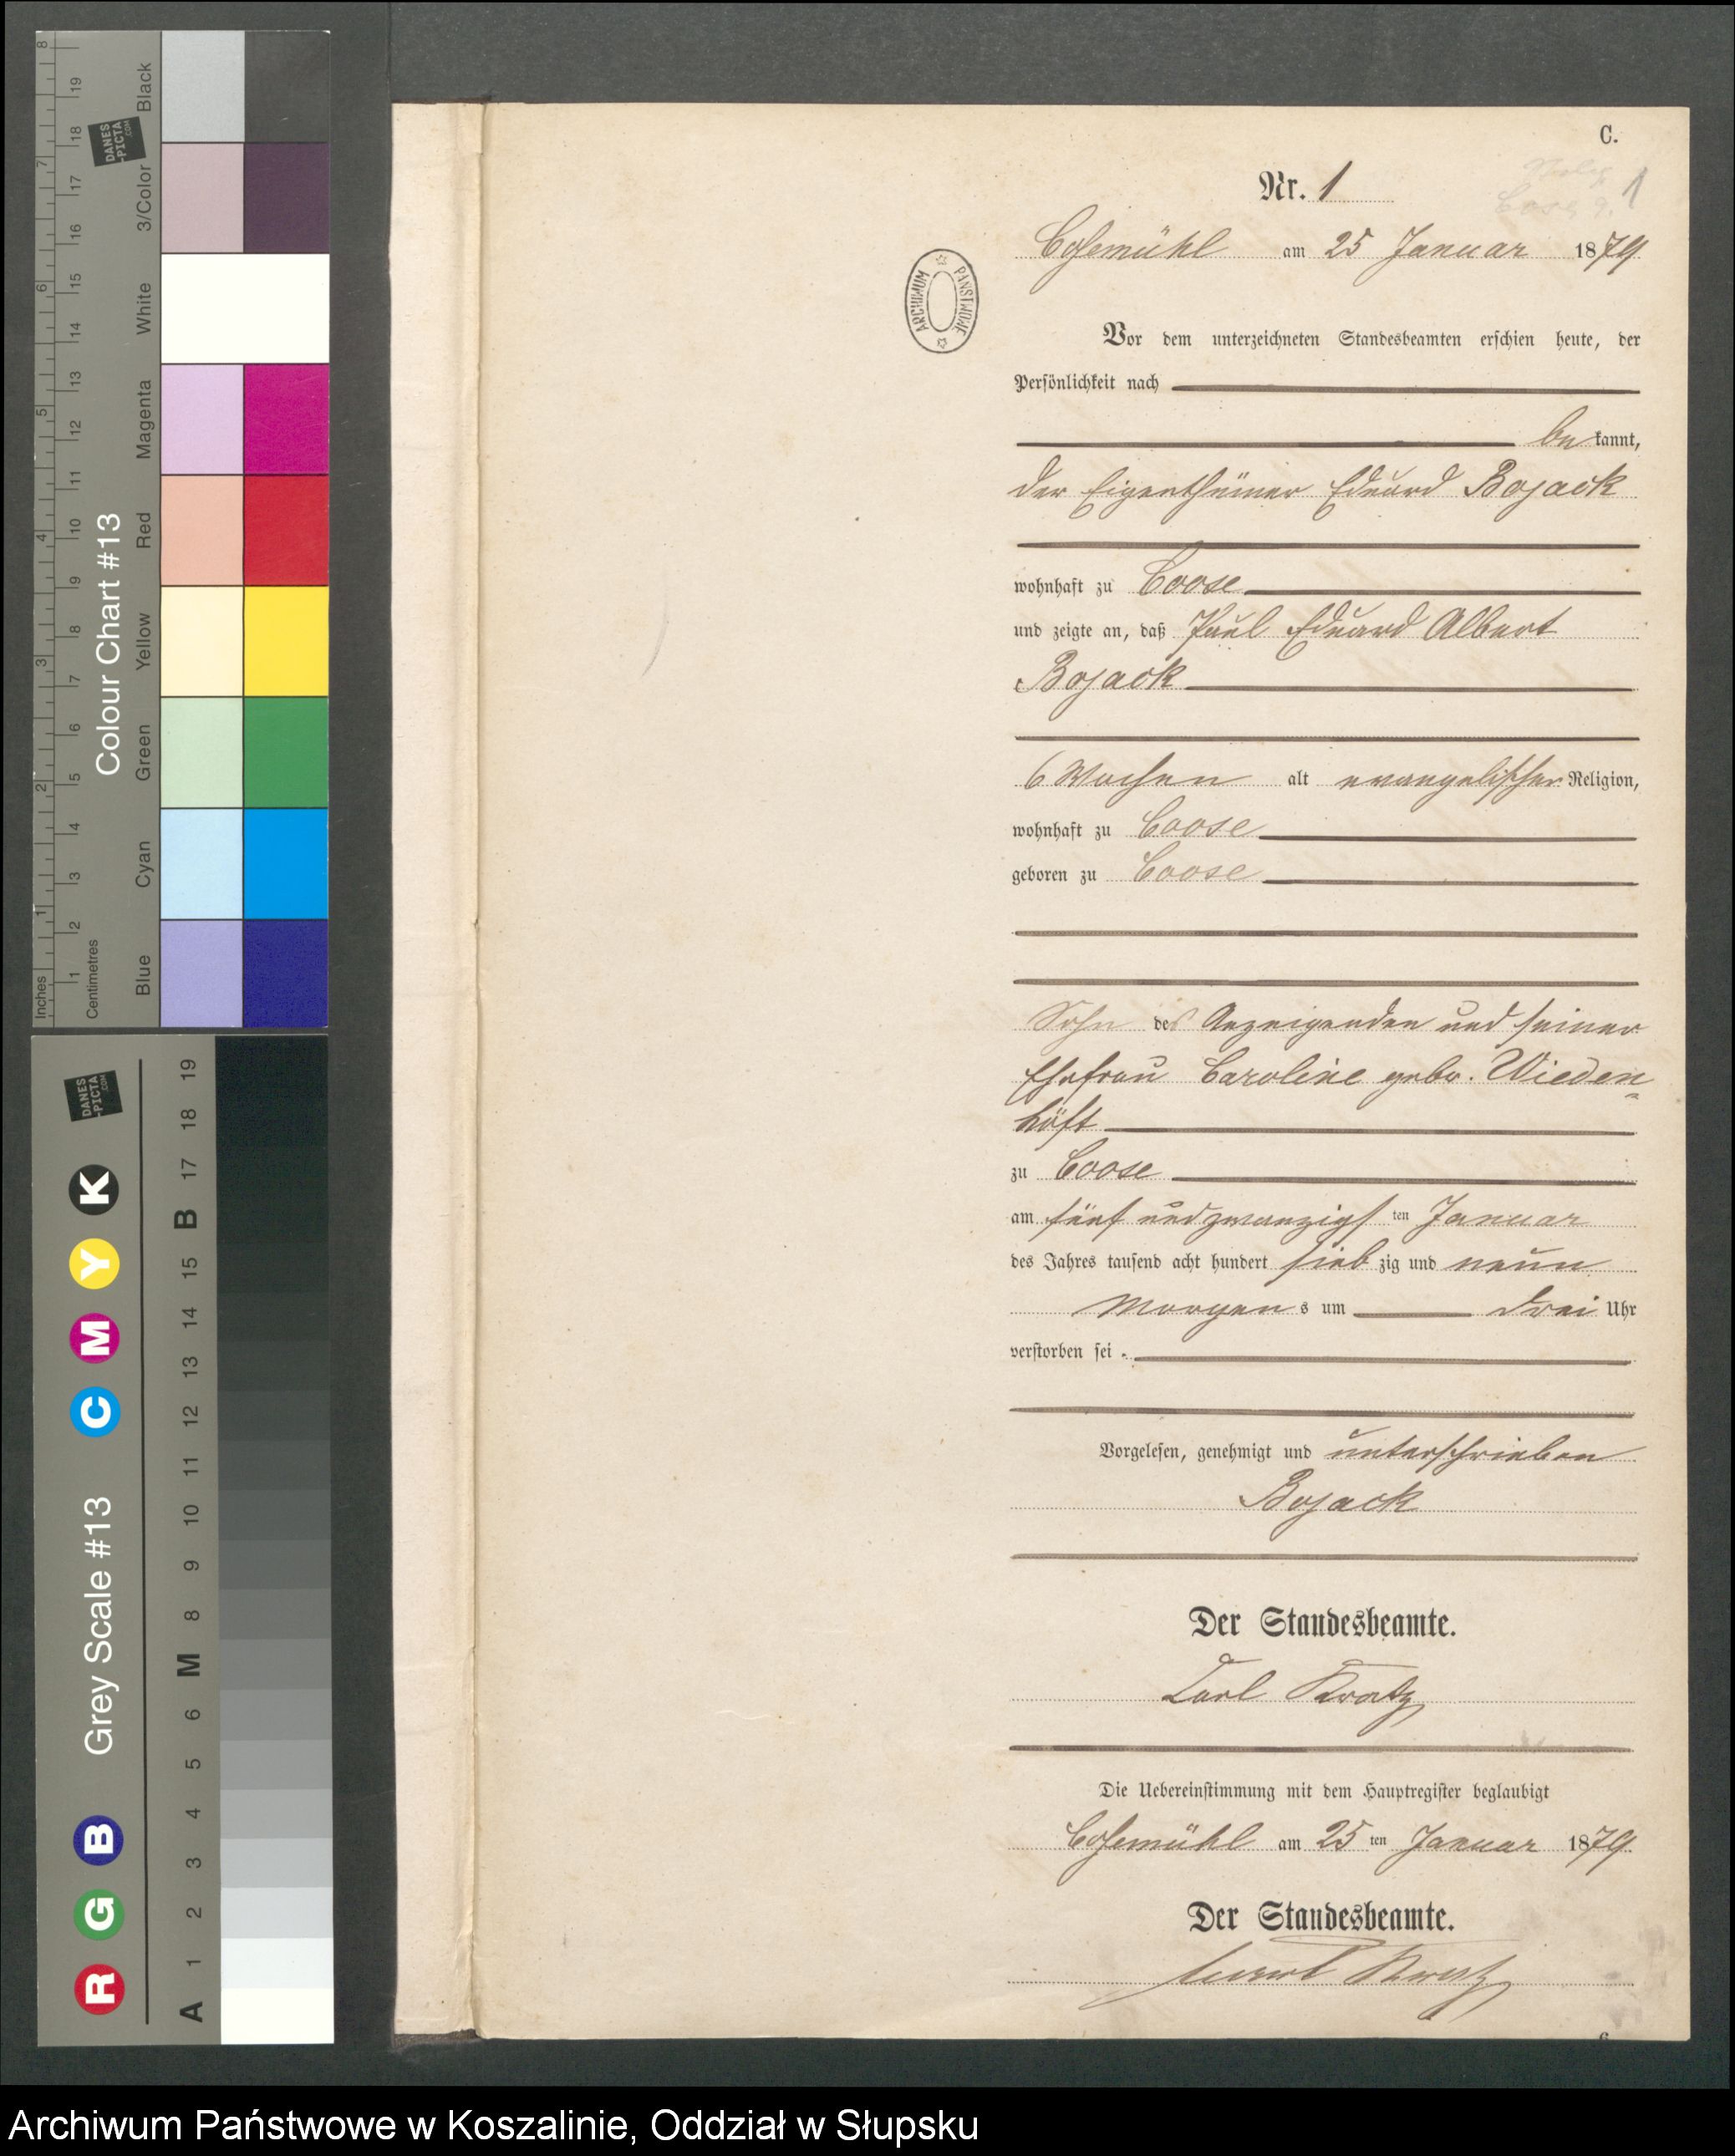 C.
Nr. 1
1
Cosemühl am 25 Januar 1879.
ARCHIWUM PAŃSTWOWE
Vor dem unterzeichneten Standesbeamten erschien heute, der
Persönlichkeit nach
be kannt,
der Eigenthümer Eduard Bojack
wohnhaft zu Coose
und zeigte an, daß Paul Eduard Albert
Bojack
6 Wochen alt evangelischer Religion,
wohnhaft zu Coose
geboren zu Coose
Sohn des Anzeigenden und seiner
Ehefrau Caroline gebor. Wieden
höft
zu Coose
am fünf und zwanzigs ten Januar
des Jahres tausend acht hundert sieb zig und neun
Morgen s um drei Uhr
verstorben sei.
Vorgelesen, genehmigt und unterschrieben
Bojack
Der Standesbeamte.
Carl Kratz
Die Uebereinstimmung mit dem Hauptregister beglaubigt
Cosemühl am 25 ten Januar 1879.
Der Standesbeamte.
Kratz
Colour Chart #13
Black
3/Color
White
Magenta
Red
Yellow
Green
Cyan
Blue
Inches 1 2 3 4 5 6 7 8
Centimetres 1 2 3 4 5 6 7 8 9 10 11 12 13 14 15 16 17 18 19
DANES
-PICTA
.COM
Grey Scale #13
R G B C M Y K
A 1 2 3 4 5 6 M 8 9 10 11 12 13 14 15 B 17 18 19
DANES
-PICTA
.COM
Archiwum Państwowe w Koszalinie, Oddział w Słupsku